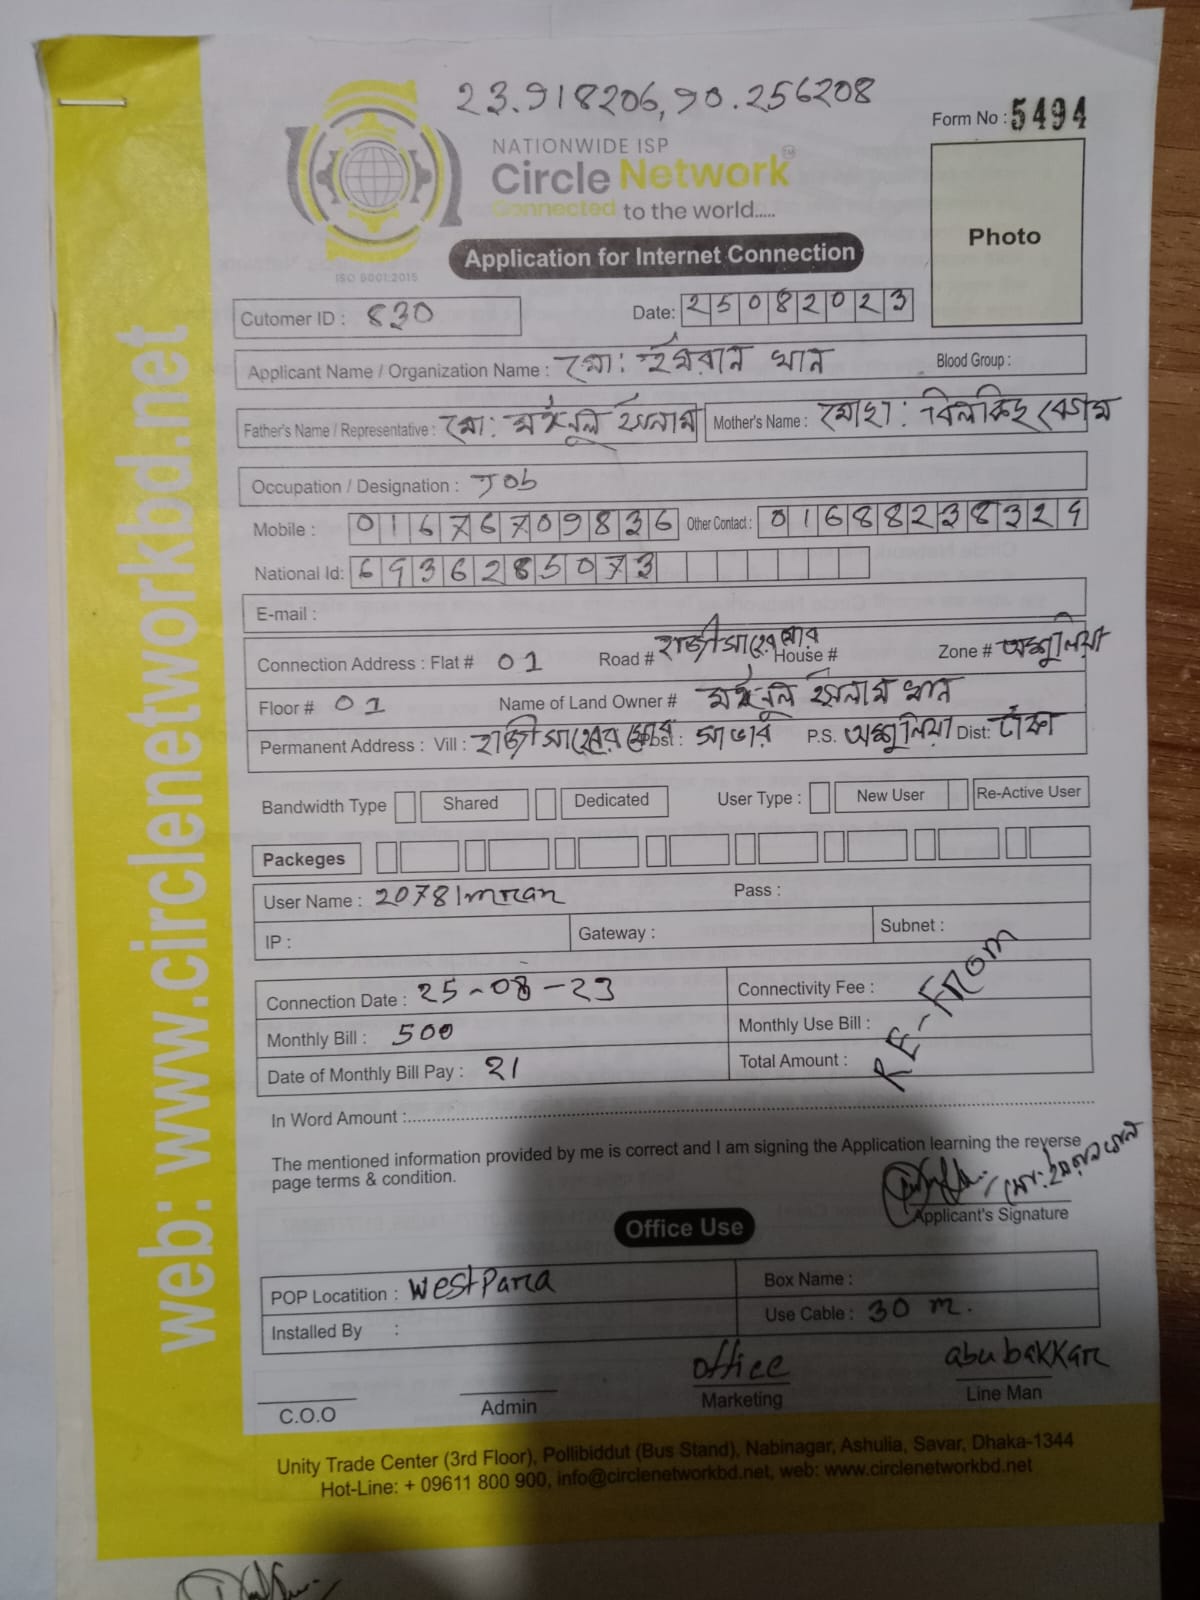 23.918206, 90.256208
Form No : 5494
NATIONWIDE ISP
Circle Network TM
Connected to the world.....
ISO 9001:2015
Application for Internet Connection
Photo
Cutomer ID : 830
Date: 25082023
Applicant Name / Organization Name : মো: ইমরান খান Blood Group :
Father's Name / Representative : মো: মঈনুল ইসলাম Mother's Name : মোছা: বিলকিছ বেগম
Occupation / Designation : Job
Mobile : 01676709836 Other Contact : 01688238329
National Id: 6936285073
E-mail :
Connection Address : Flat # 01 Road # হাজী House # Zone # আশুলিয়া
Floor # 01 Name of Land Owner # মঈনুল ইসলাম খান
Permanent Address : Vill : হাজী Post : সাভার P.S. আশুলিয়া Dist: ঢাকা
Bandwidth Type Shared Dedicated User Type : New User Re-Active User
Packeges
User Name : 2078Imran Pass :
IP : Gateway : Subnet :
Connection Date : 25-08-23 Connectivity Fee :
Monthly Bill : 500 Monthly Use Bill :
Date of Monthly Bill Pay : 21 Total Amount :
RE-From
In Word Amount :
The mentioned information provided by me is correct and I am signing the Application learning the reverse
page terms & condition.
মো: ইমরান খান
Applicant's Signature
Office Use
POP Locatition : westpara Box Name :
Installed By : Use Cable : 30 m.
office abubakkar
C.O.O Admin Marketing Line Man
Unity Trade Center (3rd Floor), Pollibiddut (Bus Stand), Nabinagar, Ashulia, Savar, Dhaka-1344
Hot-Line: + 09611 800 900, info@circlenetworkbd.net, web: www.circlenetworkbd.net
web: www.circlenetworkbd.net